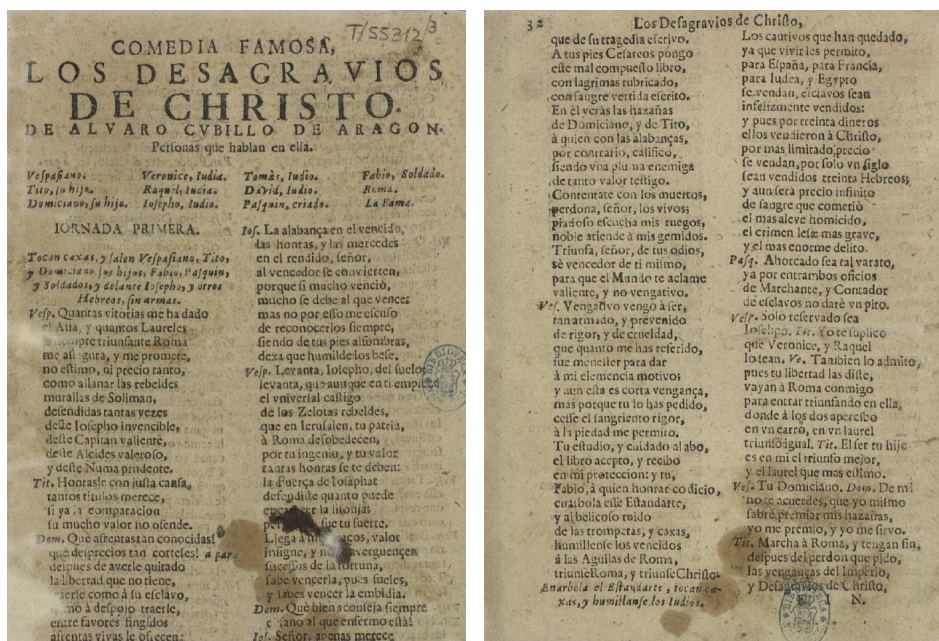 T/55312/3
COMEDIA FAMOSA,
LOS DESAGRAVIOS
DE CHRISTO.
DE ALVARO CVBILLO DE ARAGON.
Personas que hablan en ella.
Vespasiano. Veronice, Iudia. Tomàs, Iudio. Fabio, Soldado.
Tito, su hijo. Raquel, Iudia. David, Iudio. Roma.
Domiciano, su hijo. Iosepho, Iudio. Pasquin, criado. La Fama.
IORNADA PRIMERA.
Tocan caxas, y salen Vespasiano, Tito,
y Domiciano sus hijos, Fabio, Pasquin,
y Soldados, y delante Iosepho, y otros
Hebreos, sin armas.
Vesp. Quantas vitorias me ha dado
el Asia, y quantos Laureles
siempre triunfante Roma
me assigura, y me promete,
no estimo, ni precio tanto,
como allanar las rebeldes
murallas de Soliman,
defendidas tantas vezes
deste Iosepho invencible,
deste Capitan valiente,
deste Alcides valeroso,
y deste Numa prudente.
Tit. Honrasle con justa causa,
tantos titulos merece,
si ya comparacion
su mucho valor no ofende.
Dom. Què afrentas tan conocidas!
què desprecios tan corteses! à par
despues de averle quitado
la libertad que no tiene,
traerle como à su esclavo,
como à despojo traerle,
entre favores fingidos
afrentas vivas le ofrecen:
Ios. La alabança en el vencido,
las honras, y las mercedes
en el rendido, señor,
al vencedor se convierten,
porque si mucho venciò,
mucho se debe al que vence:
mas no por esso me escuso
de reconocerlos siempre,
siendo de tus pies alfombras,
dexa que humilde los bese.
Vesp. Levanta, Iosepho, del suelo,
levanta, que aunque en ti empieze
el vniversal castigo
de los Zelotas rebeldes,
que en Ierusalen, tu patria,
à Roma desobedecen,
por tu ingenio, y tu valor
tantas honras se te deben:
la Fuerça de Iosaphat
defendiste quanto puede
encarecer la lisonja:
fue tu suerte.
Llega à mis braços, valor
insigne, y no te averguencen
sucessos de la fortuna,
sabe vencerla, pues sueles,
y sabes vencer la embidia.
Dom. Què bien aconseja siempre
el sano al que enfermo està!
Ios. Señor, apenas merece
32 Los Desagravios de Christo,
que de su tragedia escrivo.
A tus pies Cesareos pongo
este mal compuesto libro,
con lagrimas rubricado,
con sangre vertida escrito.
En èl veràs las hazañas
de Domiciano, y de Tito,
à quien con las alabanças,
por contrario, califico,
siendo vna pluma enemiga
de tanto valor testigo.
Contentate con los muertos,
perdona, señor, los vivos;
piadoso escucha mis ruegos,
noble atiende à mis gemidos.
Triunfa, señor, de tus odios,
sè vencedor de ti mismo,
para que el Mundo te aclame
valiente, y no vengativo.
Ves. Vengativo vengo à ser,
tan armado, y prevenido
de rigor, y de crueldad,
que quanto me has referido,
fue menester para dar
à mi clemencia motivo;
y aun esta es corta vengança,
mas porque tu lo has pedido,
cesse el sangriento rigor,
à la piedad me permito.
Tu estudio, y cuidado alabo,
el libro acepto, y recibo
en mi proteccion: y tu,
Fabio, à quien honrar codicio,
enarbola esse Estandarte,
y al belicoso ruido
de las trompetas, y caxas,
humillense los vencidos
à las Aguilas de Roma,
triunfe Roma, y triunfe Christo.
Enarbola el Estandarte, tocan ca-
xas, y humillanse los Iudios.
Los cautivos que han quedado,
ya que vivir les permito,
para España, para Francia,
para Iudea, y Egypto
se vendan, esclavos sean
infelizmente vendidos:
y pues por treinta dineros
ellos vendieron à Christo,
por mas limitado precio
se vendan, por solo vn siglo
sean vendidos treinta Hebreos;
y aun serà precio infinito
de sangre que cometiò
el mas aleve homicido,
el crimen lesæ mas grave,
y el mas enorme delito.
Pasq. Ahorcado sea tal varato,
ya por entrambos oficios
de Marchante, y Contador
de esclavos no darè vn pito.
Vesp. Solo reservado sea
Iosepho. Tit. Yo te suplico
que Veronice, y Raquel
lo sean. Ve. Tambien lo admito,
pues tu libertad las diste,
vayan à Roma conmigo
para entrar triunfando en ella,
donde à los dos apercibo
en vn carro, en vn laurel
triunfo igual. Tit. El ser tu hijo
es en mi el triunfo mejor,
y el laurel que mas estimo.
Ves. Tu Domiciano. Dom. De mi
no te acuerdes, que yo mismo
sabrè premiar mis hazañas,
yo me premio, y yo me sirvo.
Tit. Marcha à Roma, y tengan fin,
despues del perdon que pido,
las venganças del Imperio,
y Desagravios de Christo.
F N.